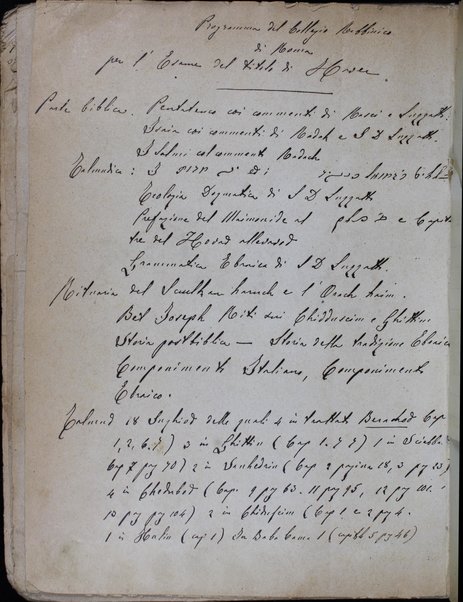 Programma del Collegio Rabbinico
di Roma
per l'Esame del titolo di Haver
Parte biblica. Pentateuco coi commenti di Rasci e Luzzatti.
Isaia coi commenti di Radak e S D Luzzatti.
I Salmi col comment Radach
Talmudica:
Teologia Dogmatica di S D Luzzatti
Prefazione del Maimonide al פ חלק e Capi
tre del
Grammatica Ebraica di S D Luzzatti.
Rituaria del Sculhan haruch e l'Orach haim.
Bet Joseph Riti sui Chidduscim e Ghittin
Storia postbiblica — Storia della tradizione Ebraica
Componimento Italiano, Componimento
Ebraico.
Talmud 18 delle quali 4 in trattat Berachod (Cap
1, 2, 6. 7) 3 in Ghittin (Cap 1. 7 9) 1 in
Cap 7 pg 70) 2 in Sanhedrin (Cap 2 pagina 18, 3 pg 23)
4 in (Cap. 9 pg 83. 11 pg 95, 12 pg 101.
13 pg pg 104) 2 in Chiduscim (Cap 1 e 2 pg 4.
1 in Hulin (cap 1) Da Baba Cama 1 (capit 5 pg 46)